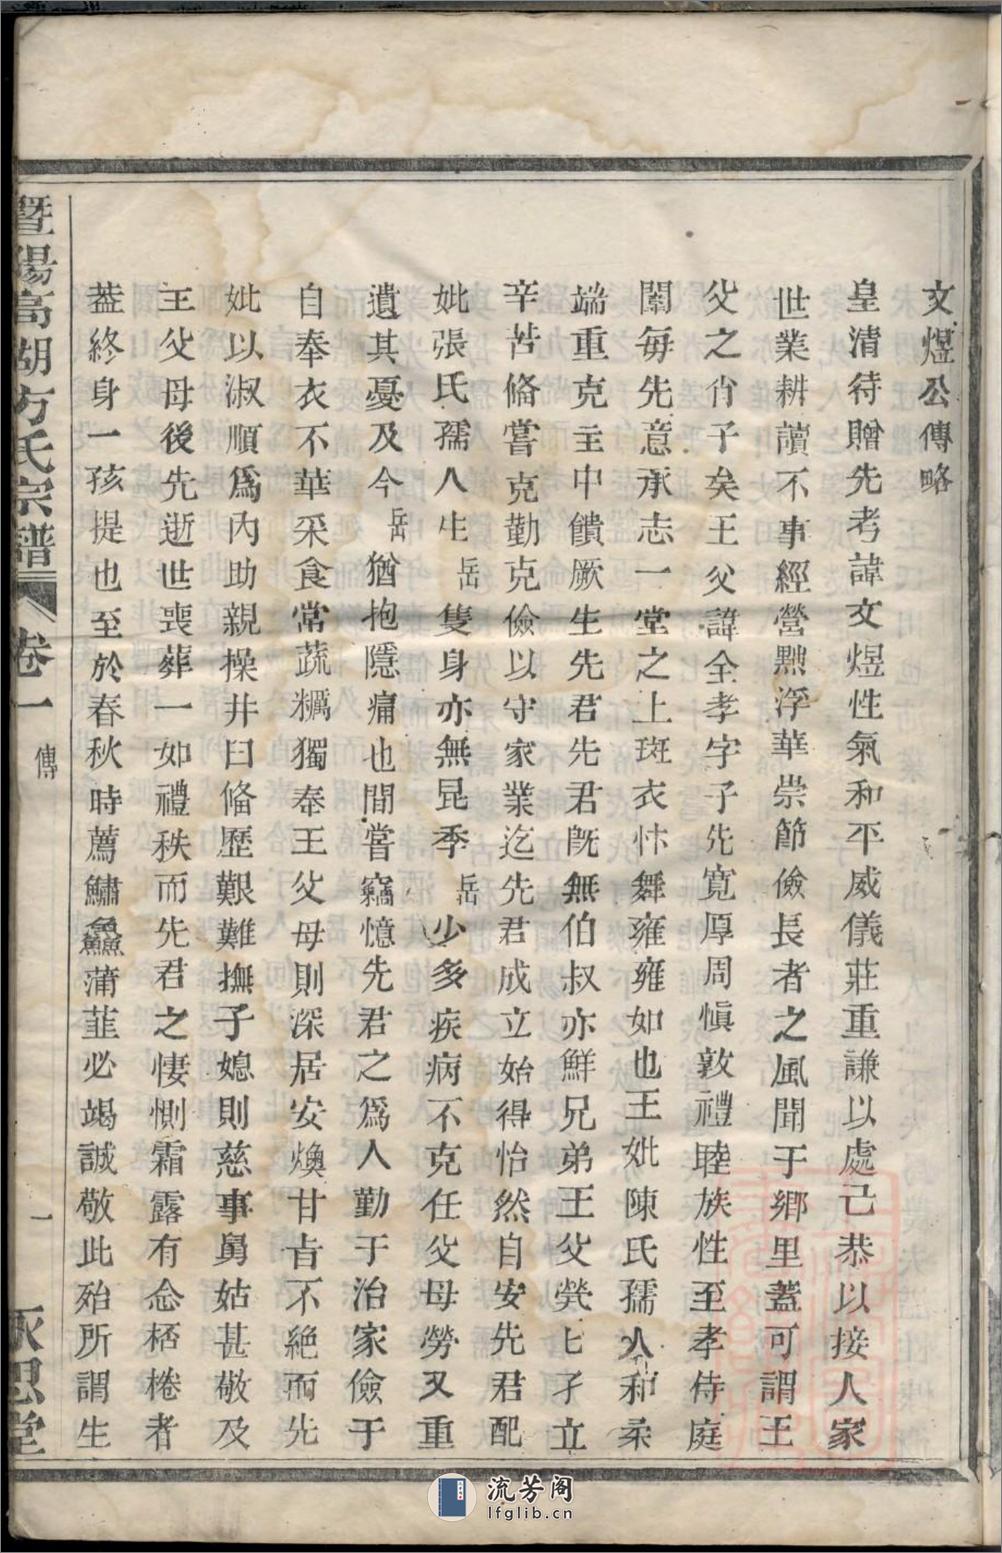 文煜公傳略
皇清待贈先考諱文煜性氣和平威儀莊重謙以處己恭以接人家
世業耕讀不事經營黜浮華崇節儉長者之風聞于鄉里蓋可謂王
父之肖子矣王父諱全孝字子先寬厚周慎敦禮睦族性至孝侍庭
闈每先意承志一堂之上斑衣忭舞雍雍如也王妣陳氏孺人和柔
端重克主中饋厥生先君先君既無伯叔亦鮮兄弟王父煢七孑立
辛苦偹嘗克勤克儉以守家業迄先君成立始得怡然自安先君配
妣張氏孺人生岳隻身亦無昆季岳少多疾病不克任父母勞又重
遺其憂及今岳猶抱隱痛也間嘗竊憶先君之爲人勤于治家儉于
自奉衣不華采食常蔬糲獨奉王父母則深居安燠甘旨不絕而先
妣以淑順爲內助親操井臼偹歷艱難撫子媳則慈事舅姑甚敬及
王父母後先逝世喪葬一如禮秩而先君之悽惻霜露有念桮棬者
葢終身一孩提也至於春秋時薦鱐鱻蒲韮必竭誠敬此殆所謂生
暨陽高湖方氏宗譜 卷一 傳 一 永思堂
流芳阁
lfglib.cn